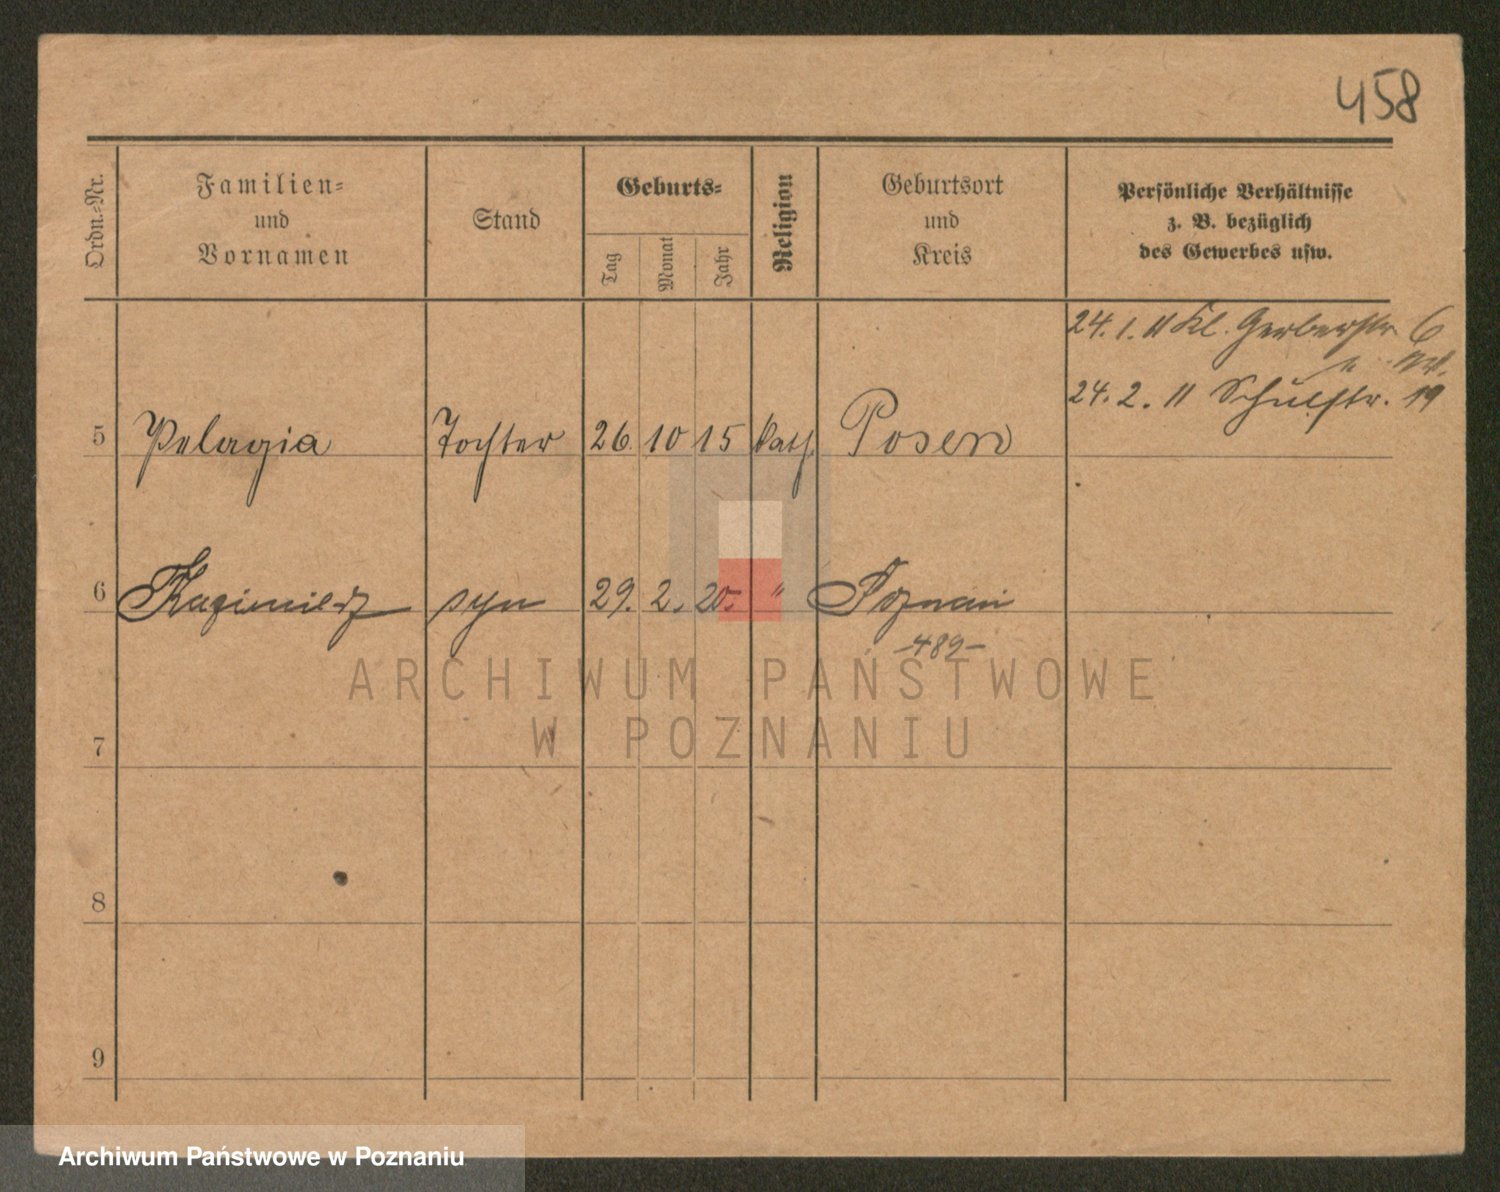 458
Ordn.-Nr.
Familien-
und
Vornamen
Stand
Geburts-
Tag
Monat
Jahr
Religion
Geburtsort
und
Kreis
Persönliche Verhältnisse
z. B. bezüglich
des Gewerbes usw.
24. 1. 11 Kl. Gerberstr. 6
24. 2. 11 Schulstr. 19
5 Pelagia Tochter 26. 10 15 kath. Posen
6 Kazimierz syn 29. 2. 20. " Poznań
-489-
ARCHIWUM PAŃSTWOWE
W POZNANIU
7
8
9
Archiwum Państwowe w Poznaniu